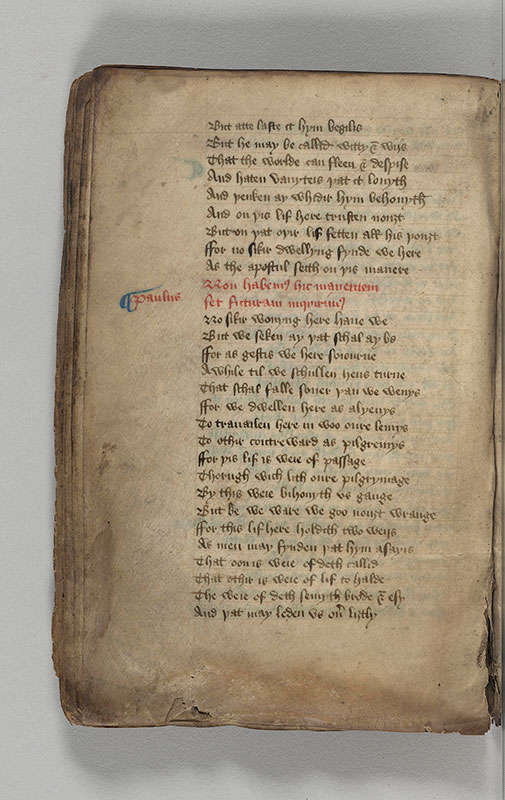 But atte laste it hym begilis
But he may be callid witty & wijs
That the worlde can fleen & despise
And haten vanyteis þat it louyth
And þenken ay whidir hym behouyth
And on þis lif here trusten nouȝt
But on þat oþir lif setten all his þouȝt
ffor no sikir dwellyng fynde we here
As the apostul seith on þis manere
Non habemus hic manentem
Paulus
set futuram inquirimus
No sikir wonyng here haue we
But we seken ay þat schal ay be
ffor as gestis we here soiourne
A while til we schullen hens turne
That schal falle soner þan we wenys
ffor we dwellen here as alyenys
To trauailen here in woo oure lemys
To othir contreward as pilgremys
ffor þis lif is weie of passage
Thorugh wich lith oure pilgrymage
By this weie bihouyth vs gange
But be we ware we goo nouȝt wrange
ffor this lif here holdith two weijs
As men may fynden þat hym asayis
That oon is weie of deth callid
That othir is weie of lif to halde
The weie of deth semyth brode & esy
And þat may leden vs liȝtly